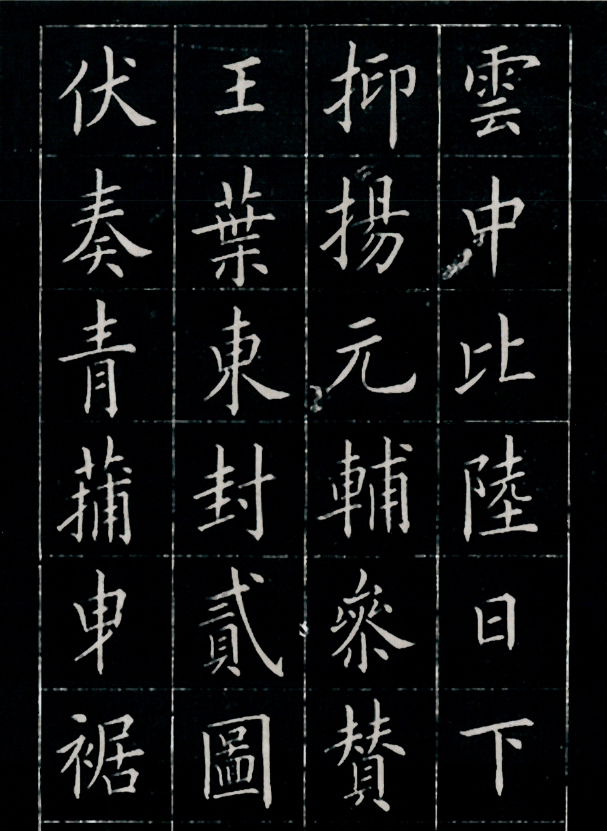 雲中比陸日下
抑揚元輔參賛
王葉東封貳圖
伏奏青蒲曳裾